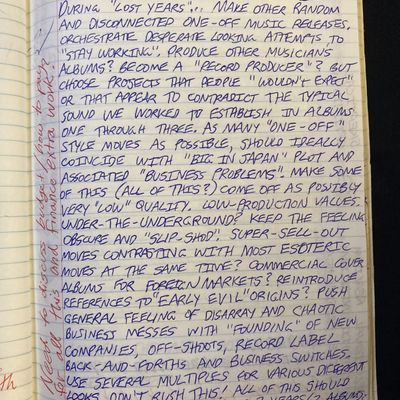 DURING "LOST YEARS"... MAKE OTHER RANDOM
AND DISCONNECTED ONE-OFF MUSIC RELEASES,
ORCHESTRATE DESPERATE LOOKING ATTEMPTS TO
"STAY WORKING". PRODUCE OTHER MUSICIANS
ALBUMS? BECOME A "RECORD PRODUCER"? BUT
CHOOSE PROJECTS THAT PEOPLE "WOULDN'T EXPECT"
OR THAT APPEAR TO CONTRADICT THE TYPICAL
SOUND WE WORKED TO ESTABLISH IN ALBUMS
ONE THROUGH THREE. AS MANY "ONE-OFF"
STYLE MOVES AS POSSIBLE, SHOULD IDEALLY
COINCIDE WITH "BIG IN JAPAN" PLOT AND
ASSOCIATED "BUSINESS PROBLEMS". MAKE SOME
OF THIS (ALL OF THIS?) COME OFF AS POSIBLY
VERY "LOW" QUALITY. LOW-PRODUCTION VALUES.
UNDER-THE-UNDERGROUND? KEEP THE FEELING
OBSCURE AND "SLIP-SHOD". SUPER-SELL-OUT
MOVES CONTRASTING WITH MOST ESOTERIC
MOVES AT THE SAME TIME? COMMERCIAL COVER
ALBUMS FOR FOREIGN MARKETS? REINTRODUCE
REFERENCES TO "EARLY EVIL" ORIGINS? PUSH
GENERAL FEELING OF DISARRAY AND CHAOTIC
BUSINESS MESSES WITH "FOUNDING" OF NEW
COMPANIES, OFF-SHOOTS, RECORD LABEL
BACK-AND-FORTHS AND BUSINESS SWITCHES.
USE SEVERAL MULTIPLES FOR VARIOUS DIFFERENT
LOOKS. DON'T RUSH THIS! ALL OF THIS SHOULD
YEARS/2 ALBUMS.
Need to discuss budget / how to pay
for all this and finance extra work?
th